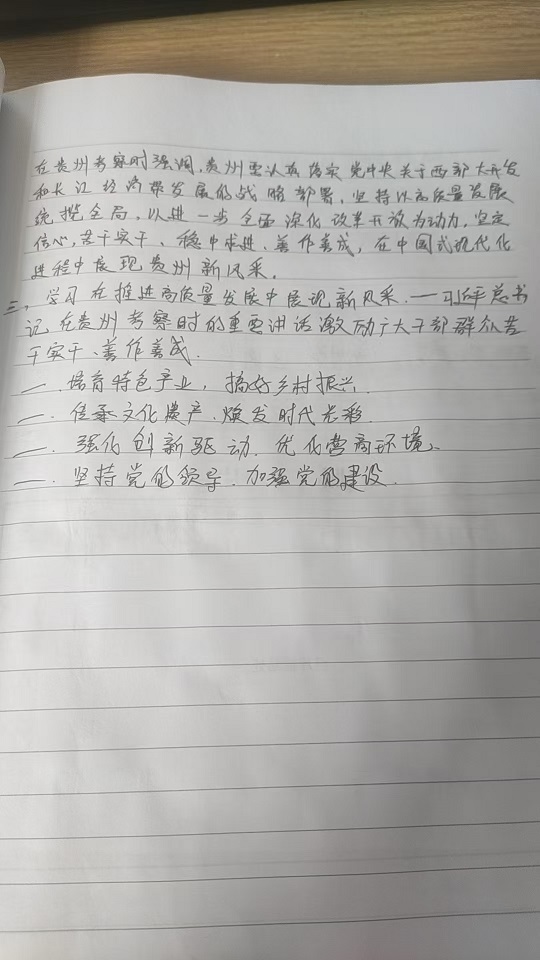 在贵州考察时强调,贵州要认真落实党中央关于西部大开发
和长江经济带发展的战略部署,坚持以高质量发展
统揽全局,以进一步全面深化改革开放为动力,坚定
信心,苦干实干、稳中求进、善作善成,在中国式现代化
进程中展现贵州新风采.
三、学习在推进高质量发展中展现新风采.——习近平总书
记在贵州考察时的重要讲话激励广大干部群众苦
干实干、善作善成.
一. 培育特色产业,搞好乡村振兴.
一. 传承文化遗产.焕发时代光彩.
一. 强化创新驱动.优化营商环境.
一. 坚持党的领导.加强党的建设.